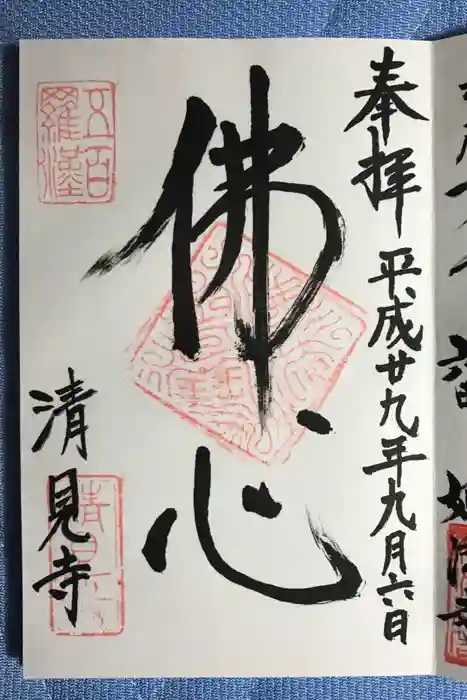 奉拝 平成廿九年九月六日
佛心
五百羅漢
清見寺